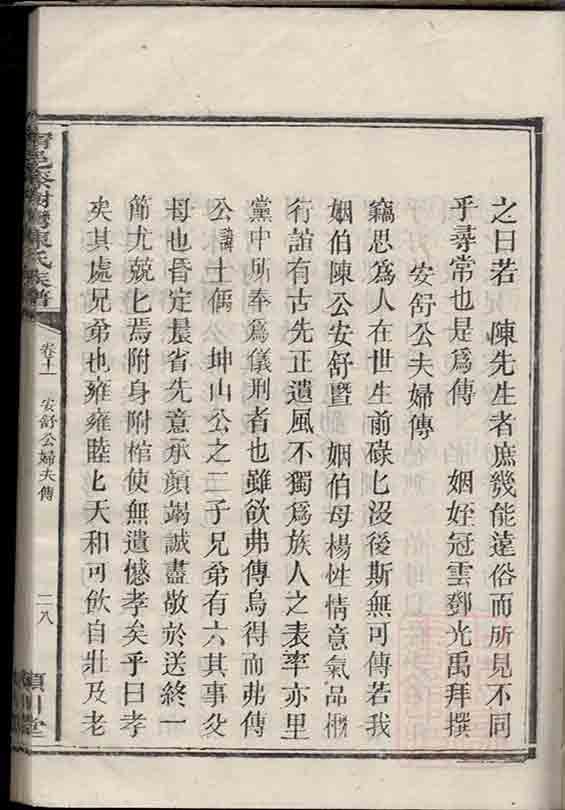 之曰若　陳先生者庶幾能遠俗而所見不同
乎尋常也是爲傳　姻姪冠雲鄧光禹拜撰
安舒公夫婦傳
竊思爲人在世生前碌匕沒後斯無可傳若我
姻伯陳公安舒暨　姻伯母楊性情意氣品概
行誼有古先正遺風不獨爲族人之表率亦里
黨中所奉爲儀刑者也雖欲弗傳烏得而弗傳
公諱士儒　坤山公之二子兄弟有六其事父
母也昏定晨省先意承顏竭誠盡敬於送終一
節尤兢匕焉附身附棺使無遺憾孝矣乎曰孝
矣其處兄弟也雍雍睦匕天和可飲自壯及老
陳氏族譜
卷十一
安舒公婦夫傳
二八
潁川堂